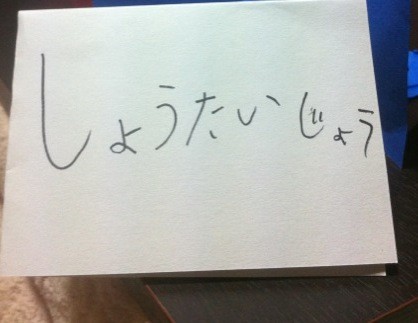 しょうたいじょう